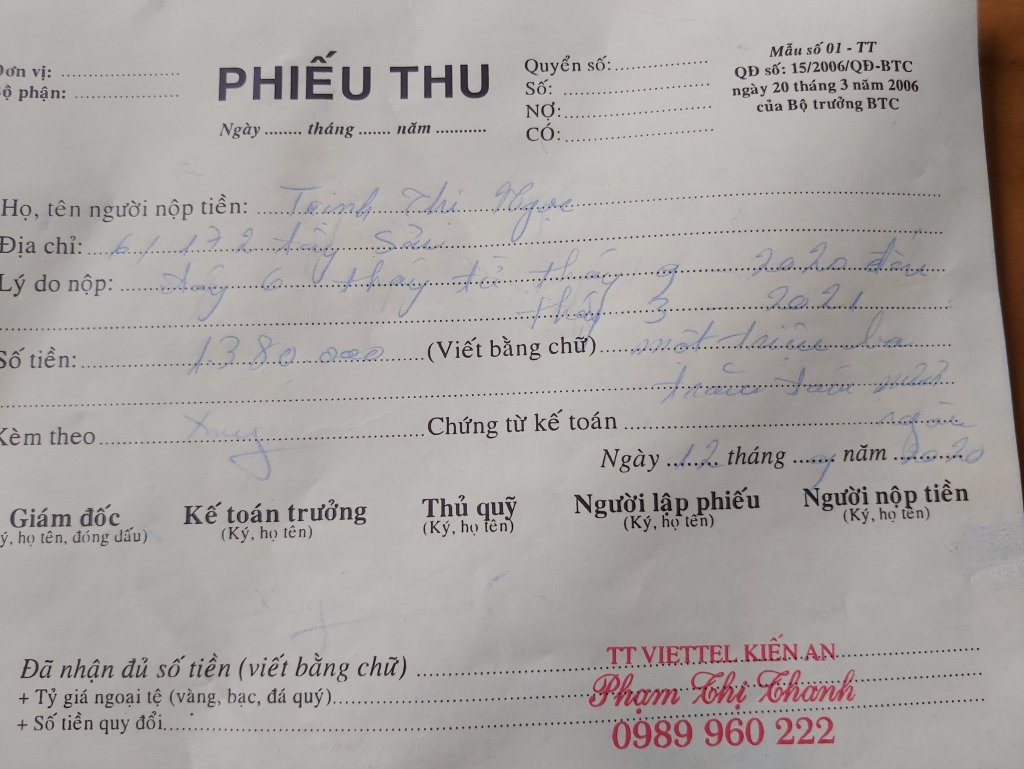 Đơn vị: ....................
Bộ phận: ....................
PHIẾU THU
Ngày ........ tháng ....... năm ...........
Quyển số:................
Số: ..........................
NỢ:..........................
CÓ:..........................
Mẫu số 01 - TT
QĐ số: 15/2006/QĐ-BTC
ngày 20 tháng 3 năm 2006
của Bộ trưởng BTC
Họ, tên người nộp tiền: Trịnh Thị Ngọc
Địa chỉ: 6/172 Tây Sơn
Lý do nộp: đóng 6 tháng từ tháng 9 2020 đến
tháng 3 2021
Số tiền: 1.380.000 (Viết bằng chữ) một triệu ba
trăm tám mươi
ngàn
Kèm theo Chứng từ kế toán
Ngày 12 tháng 9 năm 2020
Giám đốc
(Ký, họ tên, đóng dấu)
Kế toán trưởng
(Ký, họ tên)
Thủ quỹ
(Ký, họ tên)
Người lập phiếu
(Ký, họ tên)
Người nộp tiền
(Ký, họ tên)
Đã nhận đủ số tiền (viết bằng chữ)
+ Tỷ giá ngoại tệ (vàng, bạc, đá quý)
+ Số tiền quy đổi
TT VIETTEL KIẾN AN
Phạm Thị Thanh
0989 960 222